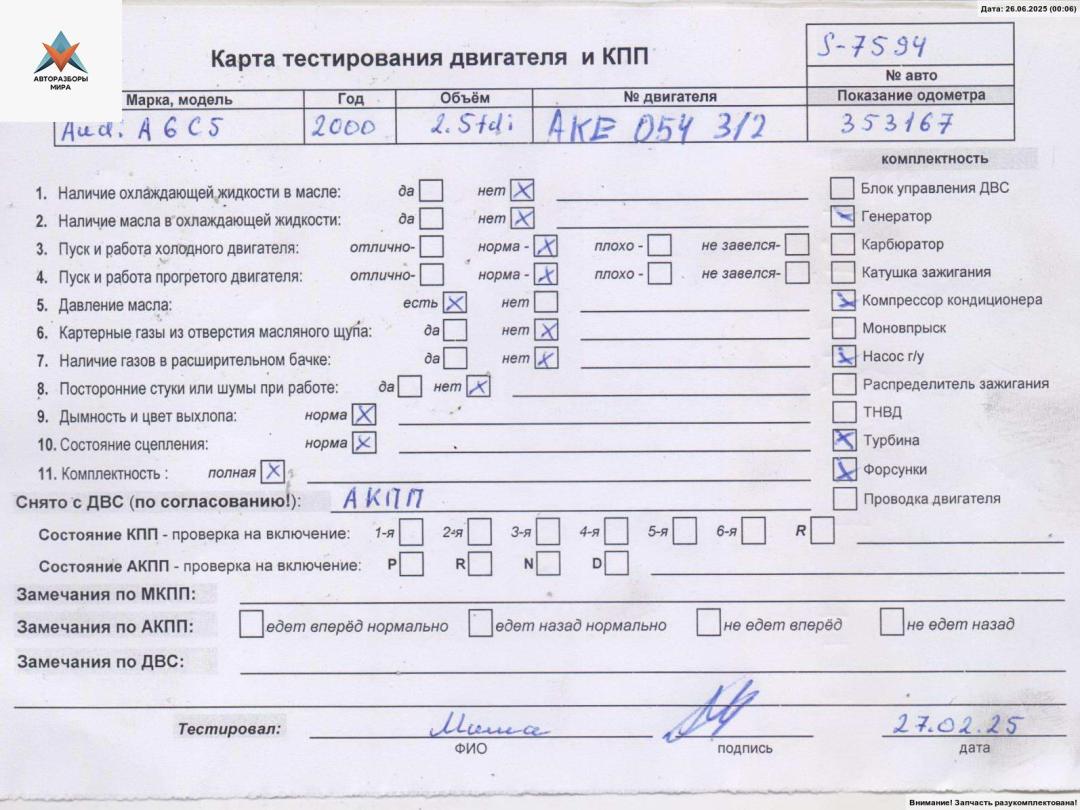 Дата: 26.06.2025 (00:06)
АВТОРАЗБОРЫ
МИРА
Карта тестирования двигателя и КПП
S-7594
№ авто
Марка, модель Год Объём № двигателя Показание одометра
Audi A6C5 2000 2.5tdi AKE 054 312 353167
комплектность
1. Наличие охлаждающей жидкости в масле: да нет X
Блок управления ДВС
2. Наличие масла в охлаждающей жидкости: да нет X
Генератор
3. Пуск и работа холодного двигателя: отлично- норма - X плохо - не завелся-
Карбюратор
4. Пуск и работа прогретого двигателя: отлично- норма - X плохо - не завелся-
Катушка зажигания
5. Давление масла: есть X нет
Компрессор кондиционера
6. Картерные газы из отверстия масляного щупа: да нет X
Моновпрыск
7. Наличие газов в расширительном бачке: да нет X
Насос г/у
8. Посторонние стуки или шумы при работе: да нет X
Распределитель зажигания
9. Дымность и цвет выхлопа: норма X
ТНВД
10. Состояние сцепления: норма X
Турбина
11. Комплектность : полная X
Форсунки
Снято с ДВС (по согласованию!): АКПП
Проводка двигателя
Состояние КПП - проверка на включение: 1-я 2-я 3-я 4-я 5-я 6-я R
Состояние АКПП - проверка на включение: P R N D
Замечания по МКПП:
Замечания по АКПП: едет вперёд нормально едет назад нормально не едет вперёд не едет назад
Замечания по ДВС:
Тестировал: 27.02.25
ФИО подпись дата
Внимание! Запчасть разукомплектована!